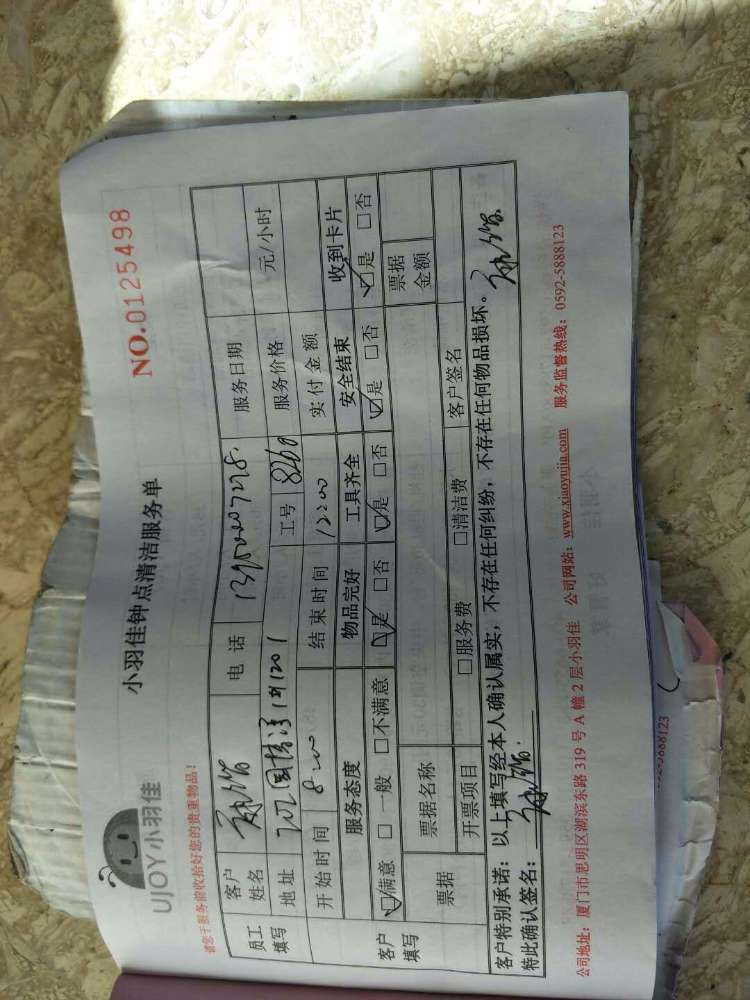 UJOY小羽佳
小羽佳钟点清洁服务单
NO.0125498
请您于服务前收拾好您的贵重物品!
员工填写 客户姓名 电话 服务日期
地址 1201 工号 8260 服务价格 元/小时
开始时间 8:00 结束时间 12:00 实付金额
客户填写 服务态度 物品完好 工具齐全 安全结束 收到卡片
☑满意 □一般 □不满意 ☑是 □否 ☑是 □否 ☑是 □否 ☑是 □否
票据 票据名称 票据金额
开票项目 □服务费 □清洁费 客户签名
客户特别承诺：以上填写经本人确认属实，不存在任何纠纷，不存在任何物品损坏。
特此确认签名：
公司地址：厦门市思明区湖滨东路 319 号 A 幢 2 层小羽佳 公司网站：www.xiaoyujia.com 服务监督热线：0592-5888123